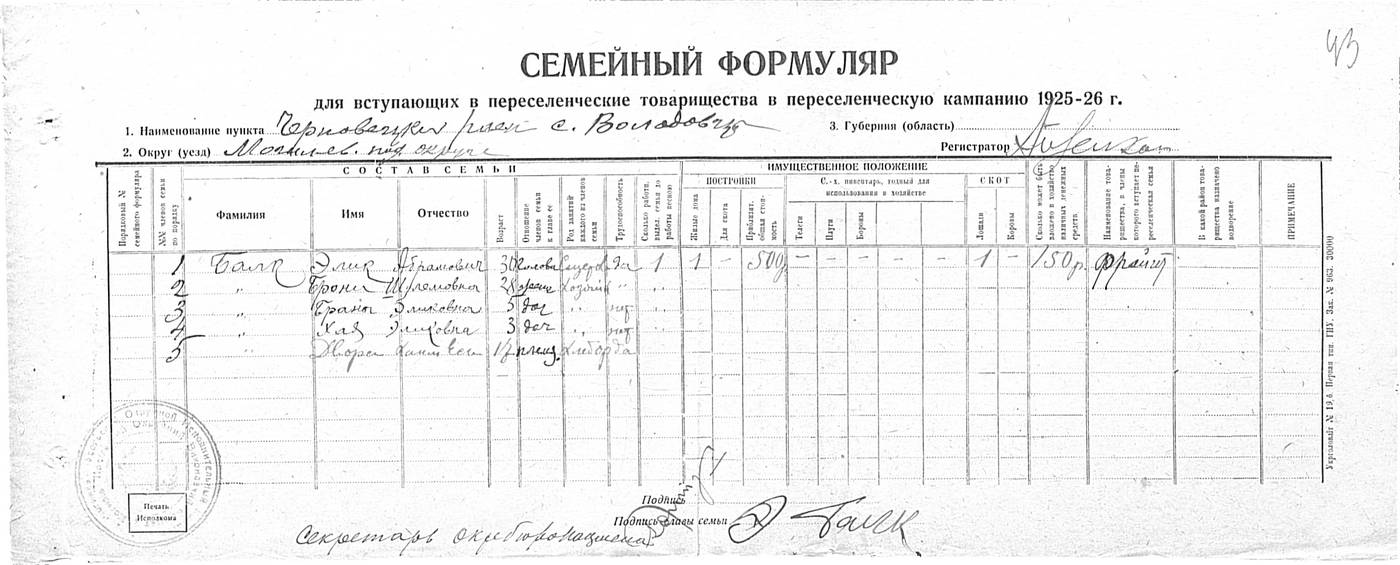 43
СЕМЕЙНЫЙ ФОРМУЛЯР
для вступающих в переселенческие товарищества в переселенческую кампанию 1925-26 г.
1. Наименование пункта Черновецкий с. Володовцы 3. Губерния (область)
2. Округ (уезд) Могилев. под. округа Регистратор
СОСТАВ СЕМЬИ ИМУЩЕСТВЕННОЕ ПОЛОЖЕНИЕ
ПОСТРОЙКИ С.-х. инвентарь, годный для использования в хозяйстве СКОТ
Порядковый № семейного формуляра
№№ членов семьи по порядку
Фамилия Имя Отчество
Возраст
Отношение членов семьи к главе ее
Род занятий каждого из членов семьи
Трудоспособность
Сколько работн. выдел. семья до работы весною
Жилые дома
Для скота
Приблизит. общая стоимость
Телеги
Плуги
Бороны
Лошади
Коровы
Сколько может быть вложено в хозяйство наличных денежных средств
Наименование товарищества, в члены которого вступает переселенческая семья
В какой район товарищества назначено водворение
ПРИМЕЧАНИЕ
1 Балк Элик Абрамович 30 голова да 1 1 – 500р – – – – – – 1 – 150 р. Фрайгт
2 „ Брона Шулемовна 28 жена „ „
3 „ Брана Эликовна 5 доч „ нет „
4 „ Хая Эликовна 3 доч „ нет „
5 „ 17 плем. хлебор да
Укрголовлит № 19,6. Первая тип. ГИУ. Зак. № 963. 30000
Печать Исполкома
Подпись
Подпись главы семьи Э Балк
Секретарь окрбюронацмена